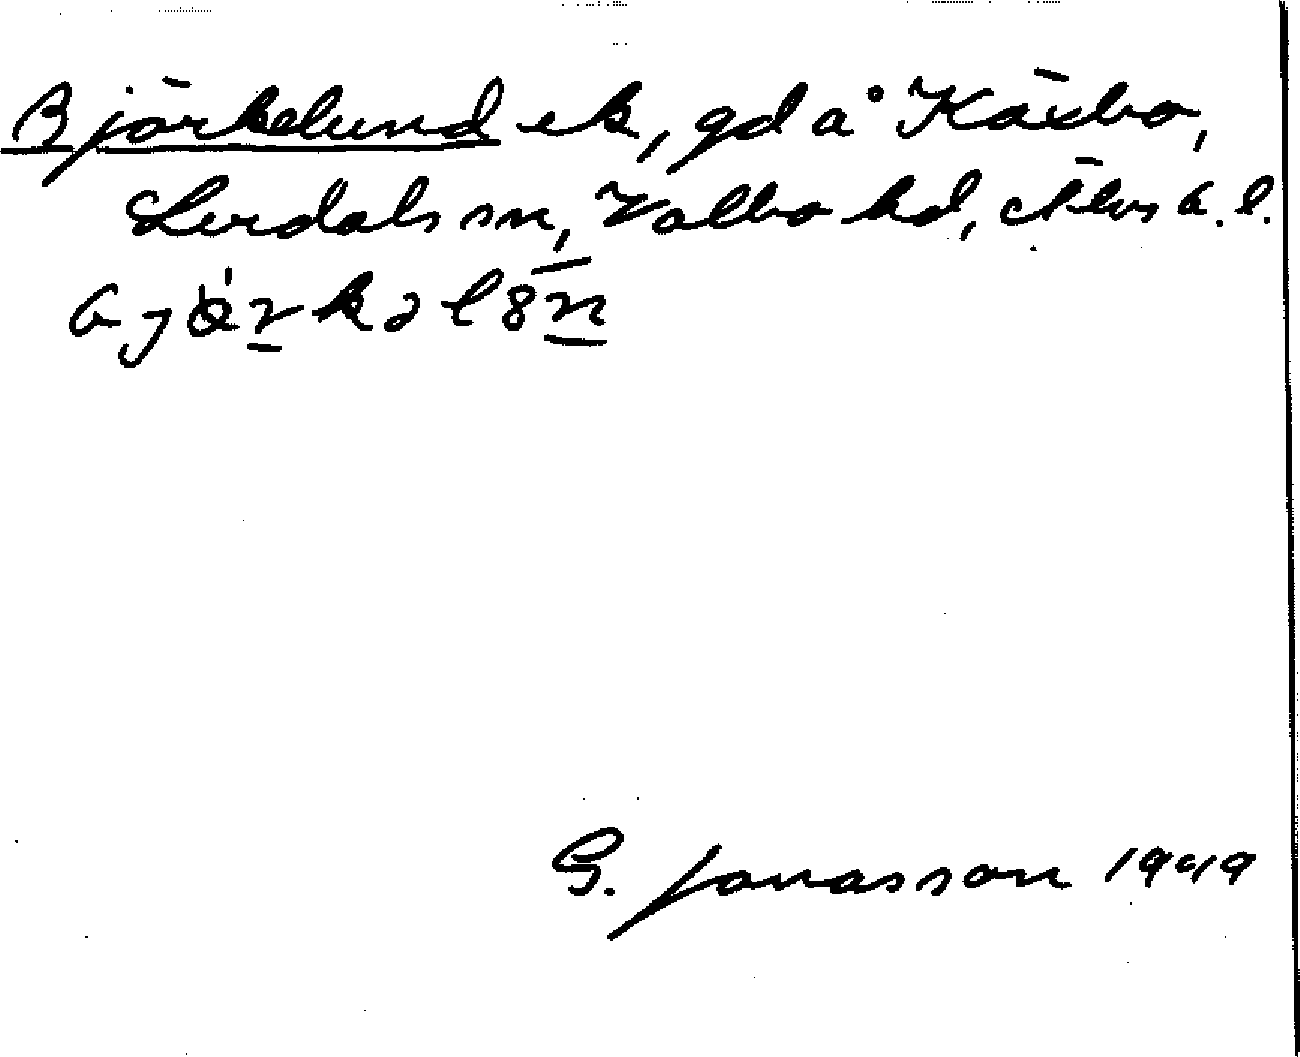 Björkelund ek, gd å Käxbo,
Lerdals sn, Valbo hd, Älvsb. l.
G. Jonasson 1949